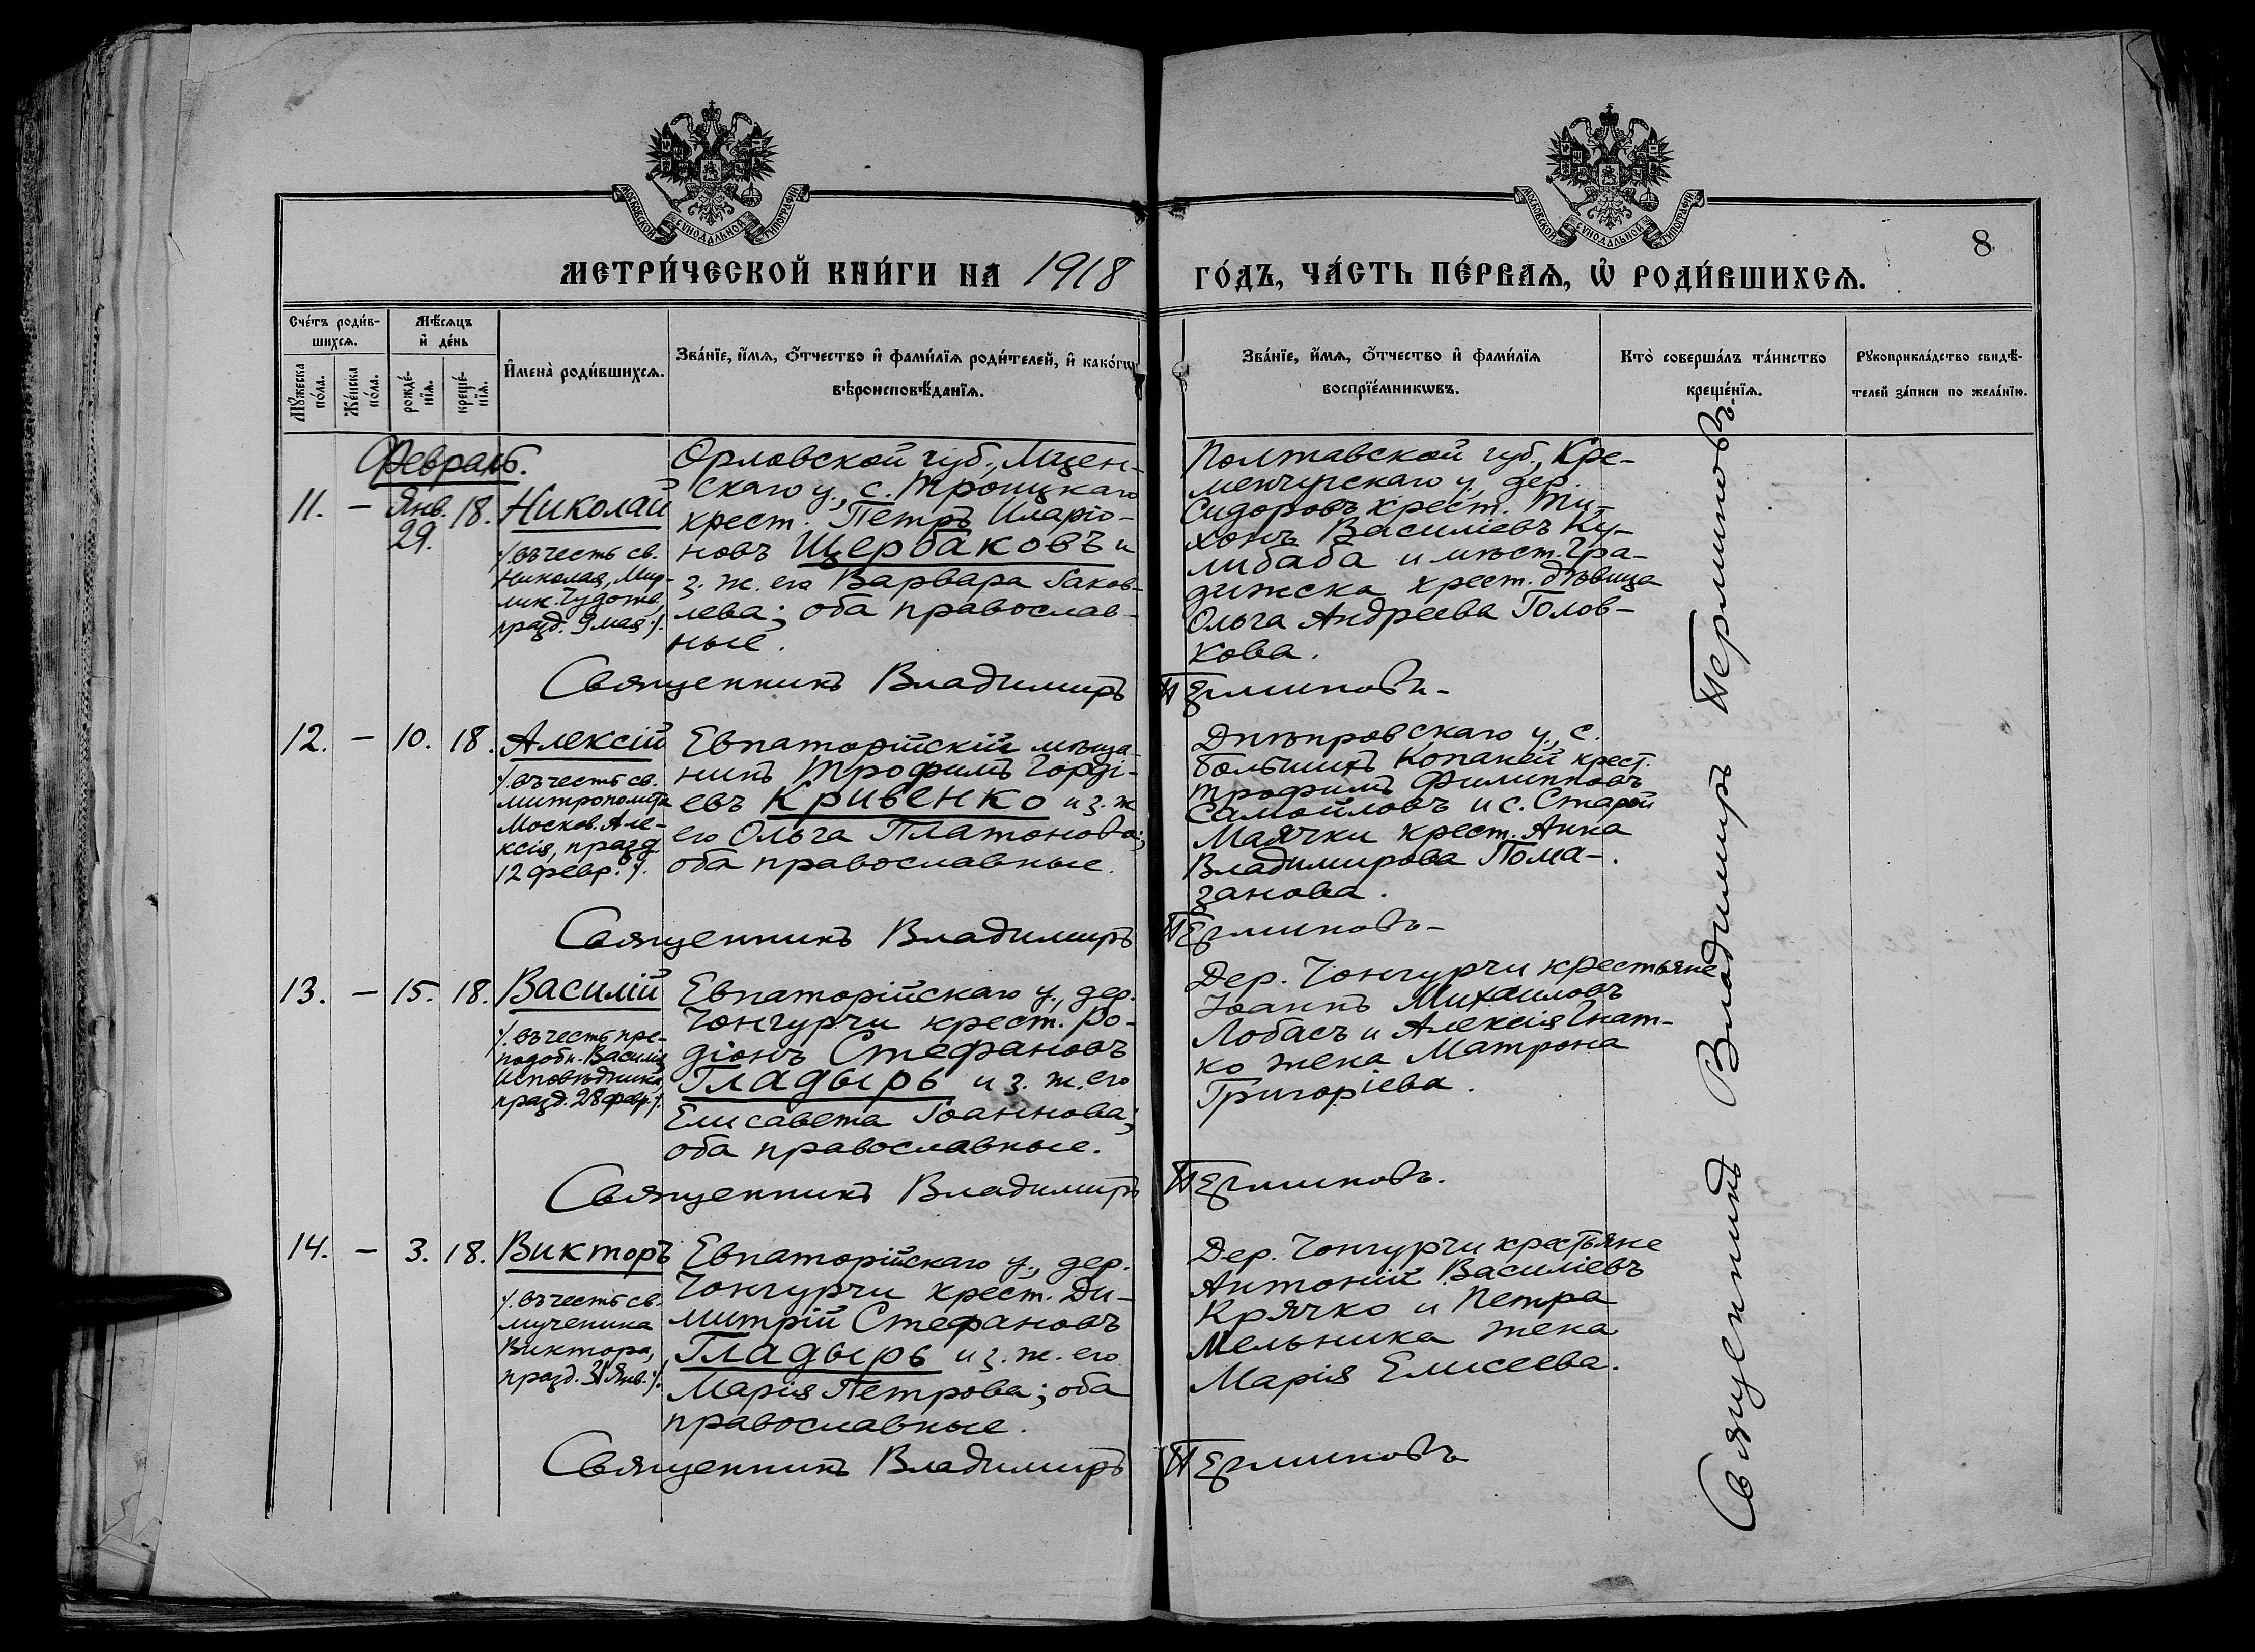 МОСКОВСКОЙ СѴНОДАЛЬНОЙ ТИПОГРАФІИ
МОСКОВСКОЙ СѴНОДАЛЬНОЙ ТИПОГРАФІИ
8
МЕТРИ́ЧЕСКОЙ КНИ́ГИ НА 1918 ГО́ДЪ, ЧА́СТЬ ПЕ́РВАѦ, Ѡ҆ РОДИ́ВШИХСѦ.
Сче́тъ роди́в-
шихсѧ.
Мѣ́сѧцъ
и҆ де́нь
Мꙋ́жеска
по́ла.
Же́нска
по́ла.
рожде́-
нїѧ.
креще́-
нїѧ.
И҆мена̀ роди́вшихсѧ.
Зва́нїе, и҆́мѧ, ѻ҆́тчество и҆ фами́лїѧ роди́телей, и҆ како́гѡ
вѣроисповѣ́данїѧ.
Зва́нїе, и҆́мѧ, ѻ҆́тчество и҆ фами́лїѧ
воспрїе́мникѡвъ.
Кто̀ соверша́лъ та́инство
креще́нїѧ.
Рꙋкоприкла́дство свидѣ́-
телей за́писи по жела́нїю.
Февраль.
11. – Янв. 29. 18. Николай
⁒ въ честь св.
Николая, Мир-
лик. Чудотв.,
празд. 9 мая ⁒.
Орловской губ., Мцен-
скаго у., с. Троицкаго
крест. Петръ Иларіо-
новъ Щербаковъ и
з. ж. его Варвара Іаков-
лева; оба православ-
ные.
Полтавской губ., Кре-
менчугскаго у., дер.
Сидоровъ крест. Ти-
хонъ Василіевъ Ку-
либаба и мѣст. Гра-
дижска крест. дѣвица
Ольга Андреева Голов-
кова.
Священникъ Владимиръ Перминовъ
12. – 10. 18. Алексій
⁒ въ честь св.
митрополита
Москов. Але-
ксія, празд.
12 февр. ⁒.
Евпаторійскій мѣща-
нинъ Трофимъ Горді-
евъ Кривенко и з. ж
его Ольга Платонова;
оба православные.
Днѣпровскаго у., с.
Большихъ Копаней крест.
Трофимъ Филипповъ
Самойловъ и с. Старой
Маячки крест. Анна
Владимирова Пома-
занова.
Священникъ Владимиръ Перминовъ
13. – 15. 18. Василій
⁒ въ честь пре-
подобн. Василія
Исповѣдника,
празд. 28 февр. ⁒.
Евпаторійскаго у., дер.
Чонгурчи крест. Ро-
діонъ Стефановъ
Гладырь и з. ж. его
Елисавета Іоаннова;
оба православные.
Дер. Чонгурчи крестьяне
Іоаннъ Михаиловъ
Лобасъ и Алексія Гнат-
ко жена Матрона
Григоріева.
Священникъ Владимиръ Перминовъ.
14. – 3. 18. Викторъ
⁒ въ честь св.
мученика
Виктора,
празд. 31 Янв. ⁒.
Евпаторійскаго у., дер.
Чонгурчи крест. Ди-
митрій Стефановъ
Гладырь и з. ж. его
Марія Петрова; оба
православные.
Дер. Чонгурчи крестьяне
Антоній Василіевъ
Крячко и Петра
Мельника жена
Марія Елисеева.
Священникъ Владимиръ Перминовъ
Священникъ Владимиръ Перминовъ.